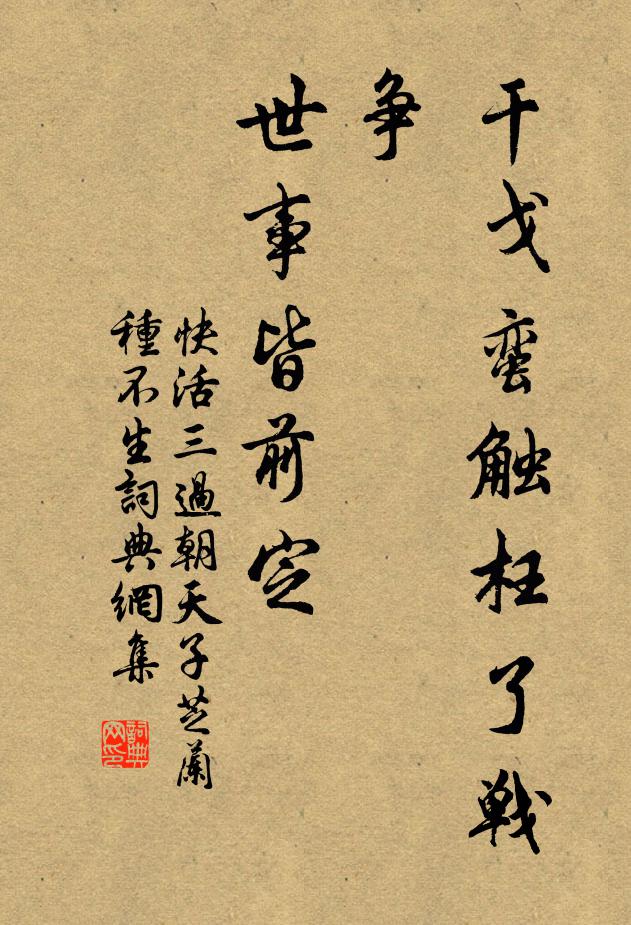 干戈蛮触枉了戦
争
世事皆前定
快活三過朝天子芝蘭
種不生詞典網集
詞典
网印